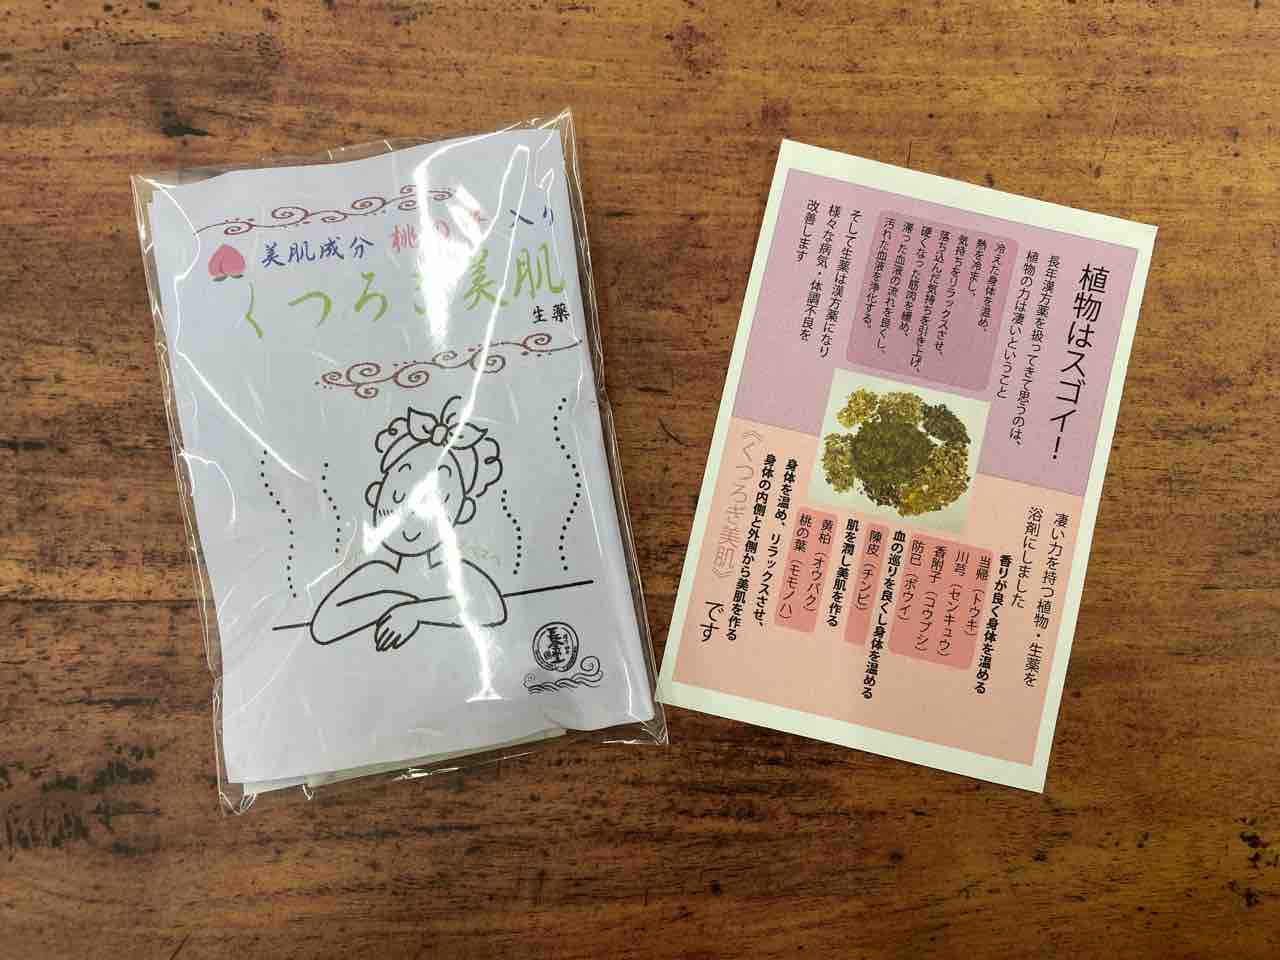 美肌成分 桃の葉 入り
くつろぎ美肌
生薬
植物はスゴイ!
長年漢方薬を扱ってきて思うのは、
植物の力は凄いということ
冷えた身体を温め、
熱を冷まし、
気持ちをリラックスさせ、
落ち込んだ気持ちを引き上げ、
硬くなった筋肉を緩め、
滞った血液の流れを良くし、
汚れた血液を浄化する。
そして生薬は漢方薬になり
様々な病気・体調不良を
改善します
凄い力を持つ植物・生薬を
浴剤にしました
香りが良く身体を温める
当帰(トウキ)
川芎(センキュウ)
香附子(コウブシ)
防已(ボウイ)
血の巡りを良くし身体を温める
陳皮(チンピ)
肌を潤し美肌を作る
黄柏(オウバク)
桃の葉(モモノハ)
身体を温め、リラックスさせ、
身体の内側と外側から美肌を作る
《くつろぎ美肌》です